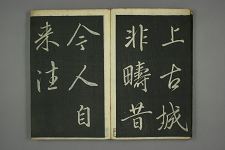 上古城
非疇昔
今人自
来往